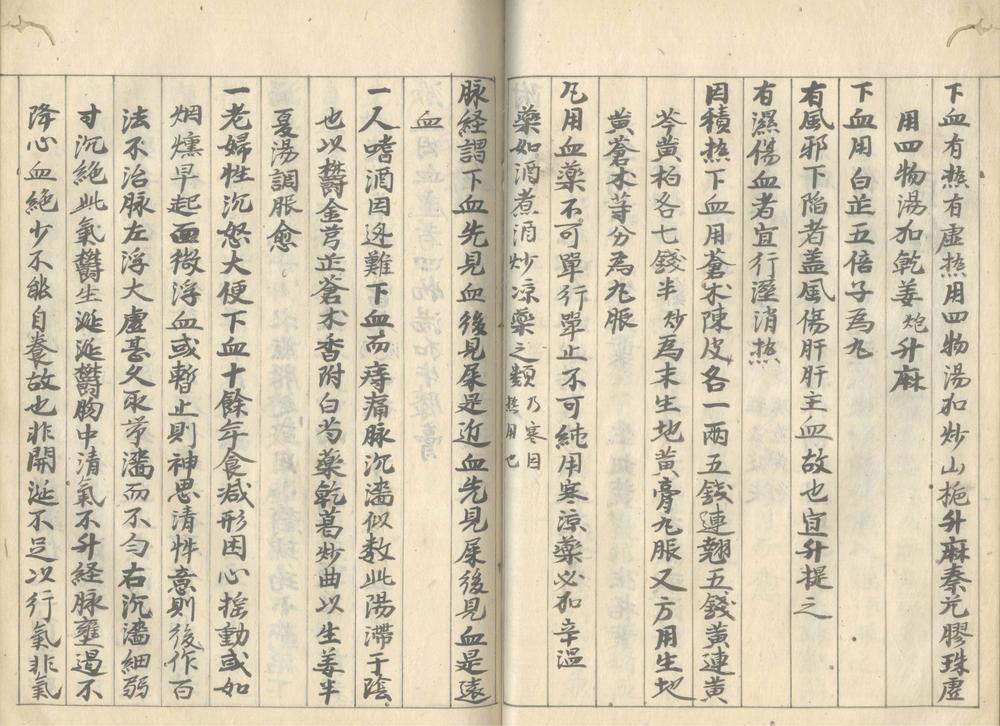 下血有热有虚热用四物湯加炒山梔升麻秦艽膠珠虚
用四物湯加乾姜炮升麻
下血用白芷五倍子為丸
有風邪下陷者盖風傷肝肝主血故也宜升提之
有濕傷血者宜行溼消热
因積热下血用蒼朮陳皮各一兩五錢連翹五錢黄連黄
芩黄柏各七錢半炒為末生地黄膏丸服又方用生地
黄蒼朮等分為丸服
凡用血薬不可單行單止不可純用寒涼薬必加辛温
薬如酒煮酒炒凉薬之類乃寒因热用也
脉経謂下血先見血後見屎是近血先見屎後見血是遠
一人嗜酒因逃難下血而痔痛脉沉濇似数此陽滯于陰
也以欝金芎芷蒼朮香附白芍薬乾葛炒曲以生姜半
夏湯調服愈。
一老婦性沉怒大便下血十餘年食减形困心揺動或如
烟燻早起面微浮血或暫止則神思清忤意則後作百
法不治脉左浮大虚甚久取芤濇而不匀右沉濇細弱
寸沉絶此氣欝生涎涎欝胸中清氣不升経脉壅遏不
降心血絶少不能自養故也非開涎不足以行氣非氣